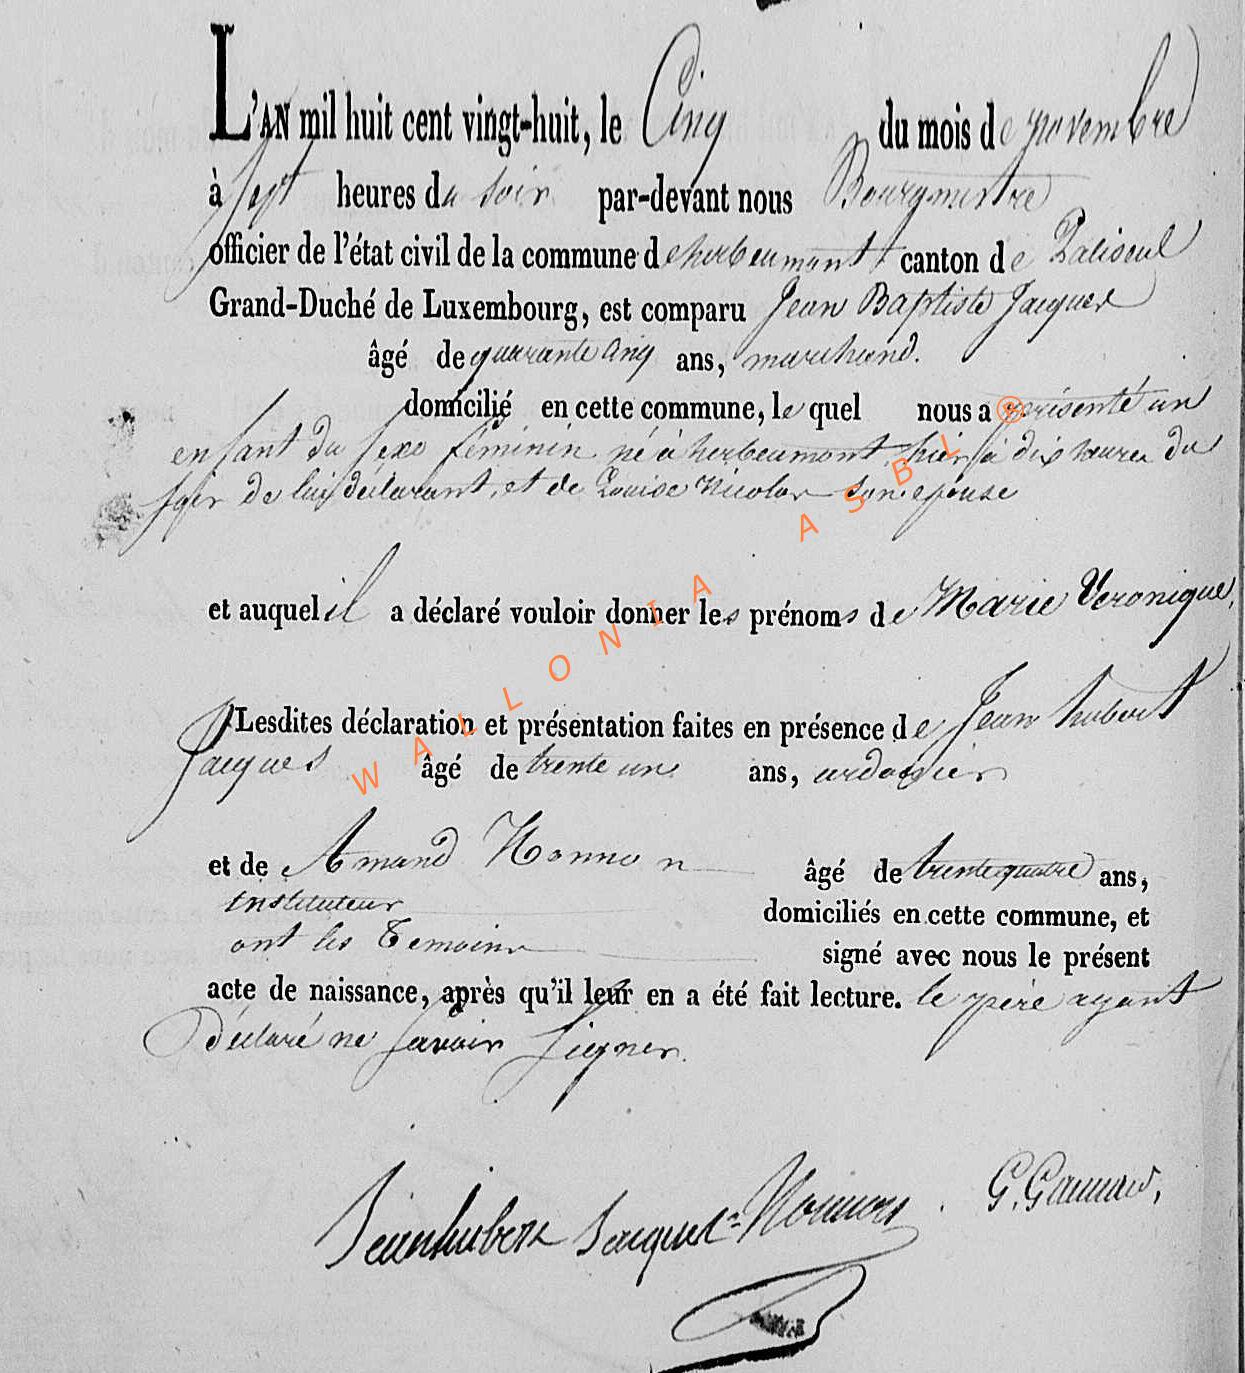 L'AN mil huit cent vingt-huit, le Cinq du mois de novembre
à sept heures du soir par-devant nous Bourgmestre
officier de l'état civil de la commune de herbeumont canton de Paliseul
Grand-Duché de Luxembourg, est comparu Jean Baptiste Jacques
âgé de quarante cinq ans, marchand.
domicilié en cette commune, le quel nous a présenté un
enfant du sexe féminin né à herbeumont hier à dix heures du
soir de lui déclarant, et de Louise Nicolas son epouse
et auquel il a déclaré vouloir donner les prénoms de Marie Veronique,
Lesdites déclaration et présentation faites en présence de Jean hubert
Jacques âgé de trente un ans, ardoisier
et de Amand Honnon âgé de trente quatre ans,
instituteur domiciliés en cette commune, et
ont les Temoins signé avec nous le présent
acte de naissance, après qu'il leur en a été fait lecture. le père ayant
déclaré ne savoir signer.
Jeanhubert Jacques Honnon G.
WALLONIA ASBL ®